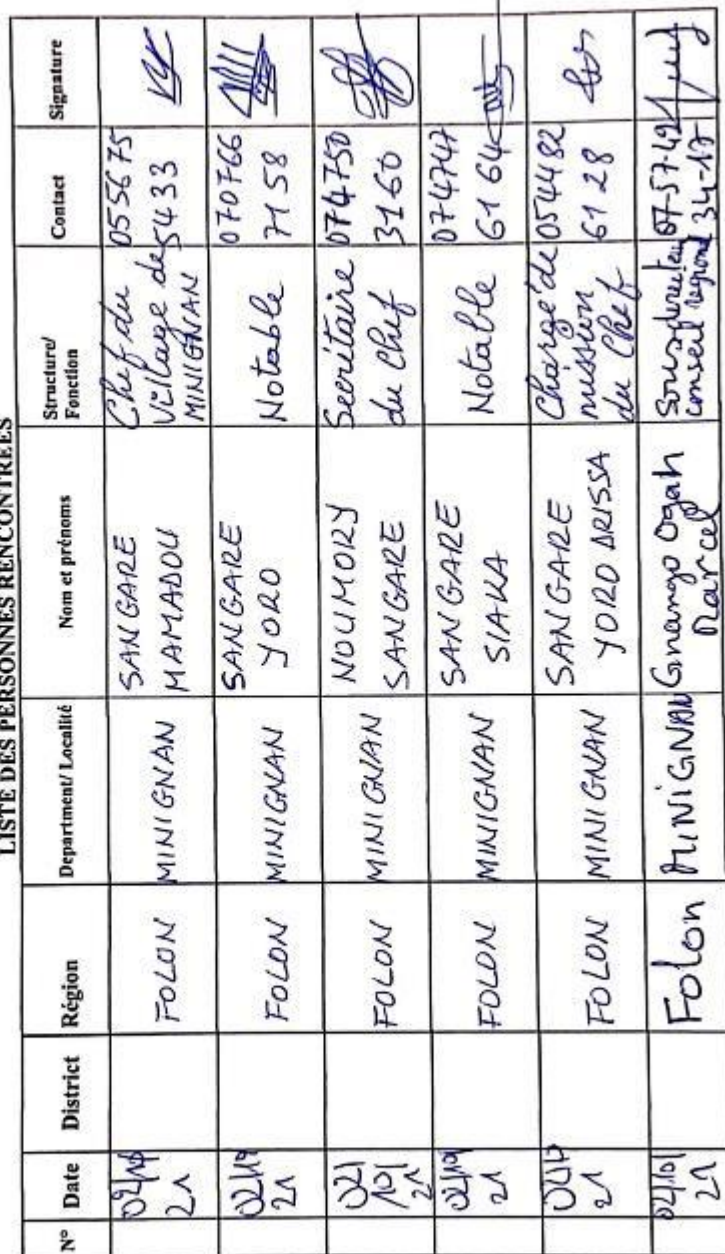 LISTE DES PERSONNES RENCONTREES
N° Date District Région Department/ Localité Nom et prénoms Structure/ Fonction Contact Signature
02/10/ 21 FOLON MINIGNAN SANGARE MAMADOU Chef du Village de MINIGNAN 055675 5433
02/10/ 21 FOLON MINIGNAN SANGARE YORO Notable 070766 7158
02/ 10/ 21 FOLON MINIGNAN NOUMORY SANGARE Secrétaire du Chef 074750 3160
02/10/ 21 FOLON MINIGNAN SANGARE SIAKA Notable 074747 6164
02/10 21 FOLON MINIGNAN SANGARE YORO DRISSA Chargé de mission du Chef 054482 6128
02/10/ 21 Folon MINIGNAN Gnango Ogah Marcel Sous directeur conseil régional 07-57-42 34-17